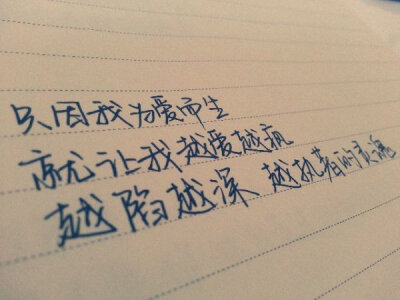 只因我为爱而生
就让我越爱越疯
越陷越深 越执着的灵魂